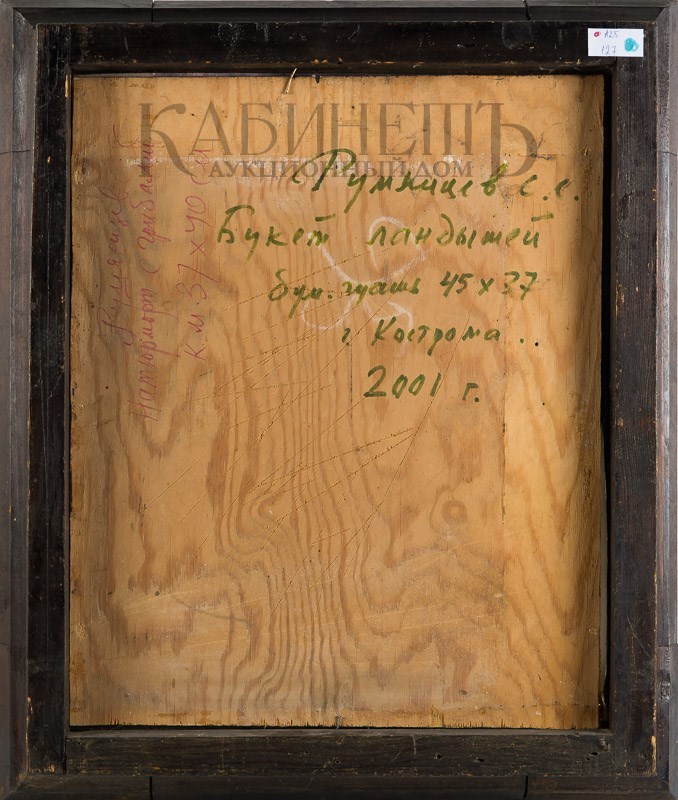 КАБИНЕТЪ
АУКЦИОННЫЙ ДОМ
Румянцев С.Е.
Букет ландышей
бум. гуашь 45 х 37
г. Кострома..
2001 г.
Румянцев
Натюрморт с грибами
К.М. 37 х 40 см
127